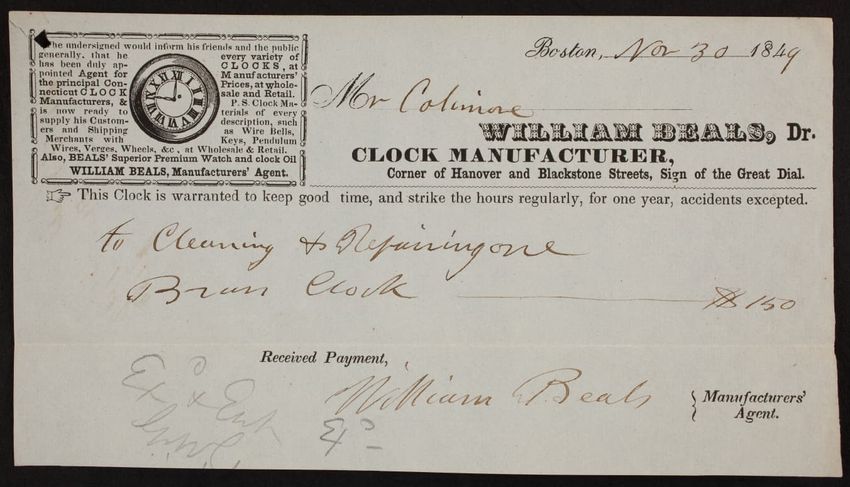 The undersigned would inform his friends and the public
generally, that he
has been duly ap-
pointed Agent for
the principal Con-
necticut CLOCK
Manufacturers, &
is now ready to
supply his Custom-
ers and Shipping
Merchants with
every variety of
CLOCKS, at
Manufacturers'
Prices, at whole-
sale and Retail.
P. S. Clock Ma-
terials of every
description, such
as Wire Bells,
Keys, Pendulum
Wires, Verges, Wheels, &c., at Wholesale & Retail.
Also, BEALS' Superior Premium Watch and clock Oil
WILLIAM BEALS, Manufacturers' Agent.
Boston, Nov 30 1849
Mr Colimore
WILLIAM BEALS, Dr.
CLOCK MANUFACTURER,
Corner of Hanover and Blackstone Streets, Sign of the Great Dial.
This Clock is warranted to keep good time, and strike the hours regularly, for one year, accidents excepted.
to Cleaning & Repairing one
Brass Clock $ 150
Received Payment,
William Beals
Manufacturers'
Agent.